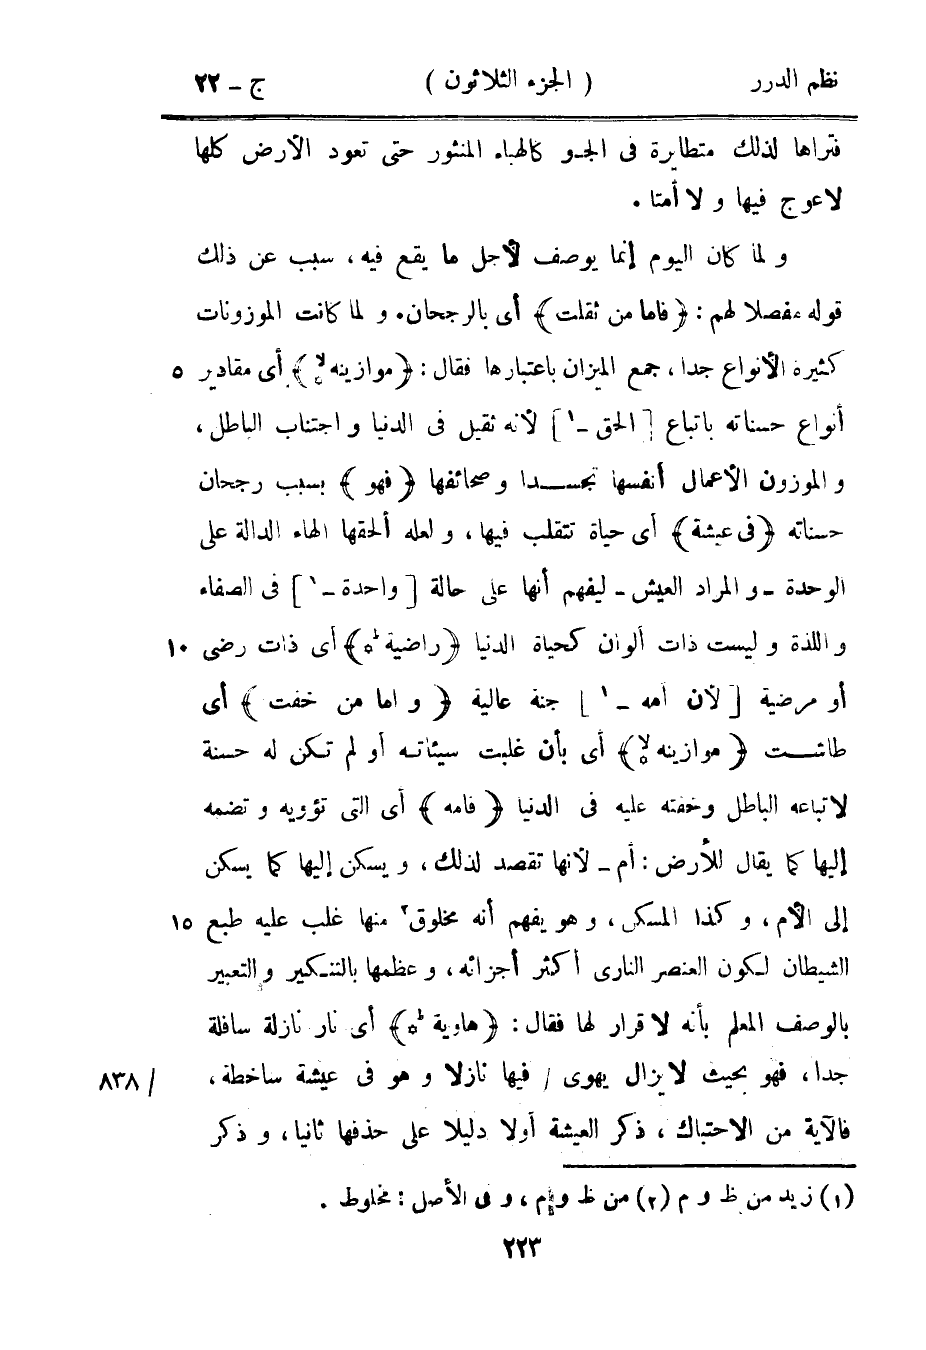 نظم الدرر ( الجزء الثلاثون ) ج – ٢٢
فتراها لذلك متطايرة فى الجو كالهباء المنثور حتى تعود الأرض كلها
لا عوج فيها و لا أمتا .
و لما كان اليوم إنما يوصف لأجل ما يقع فيه ، سبب عن ذلك
قوله مفصلا لهم : ﴿ فاما من ثقلت ﴾ أى بالرجحان . و لما كانت الموزونات
كثيرة الأنواع جدا ، جمع الميزان باعتبارها فقال : ﴿ موازينه لا ﴾ أى مقادير ٥
أنواع حسناته باتباع [ الحق –١ ] لأنه ثقيل فى الدنيا و اجتناب الباطل ،
و الموزون الأعمال أنفسها تجسدا و صحائفها ﴿ فهو ﴾ بسبب رجحان
حسناته ﴿ فى عيشة ﴾ أى حياة تتقلب فيها ، و لعله ألحقها الهاء الدالة على
الوحدة – و المراد العيش – ليفهم أنها على حالة [ واحدة –١ ] فى الصفاء
و اللذة و ليست ذات ألوان كحياة الدنيا ﴿ راضية ط ﴾ أى ذات رضى ١٠
أو مرضية [ لأن أمه –١ ] جنة عالية ﴿ و اما من خفت ﴾ أى
طاشت ﴿ موازينه لا ﴾ أى بأن غلبت سيئاته أو لم تكن له حسنة
لاتباعه الباطل وخفته عليه فى الدنيا ﴿ فامه ﴾ أى التى تؤويه و تضمه
إليها كما يقال للأرض : أم – لأنها تقصد لذلك ، و يسكن إليها كما يسكن
إلى الأم ، و كذا المسكن ، و هو يفهم أنه مخلوق٢ منها غلب عليه طبع ١٥
الشيطان لكون العنصر النارى أكثر أجزائه ، و عظمها بالتنكير و التعبير
بالوصف المعلم بأنه لا قرار لها فقال : ﴿ هاوية ط ﴾ أى نار نازلة سافلة
جدا ، فهو بحيث لا يزال يهوى / فيها نازلا و هو فى عيشة ساخطة ، / ٨٣٨
فالآية من الاحتباك ، ذكر العيشة أولا دليلا على حذفها ثانيا ، و ذكر
(١) زيد من ظ و م (٢) من ظ و م ، و فى الأصل : مخلوط .
٢٢٣